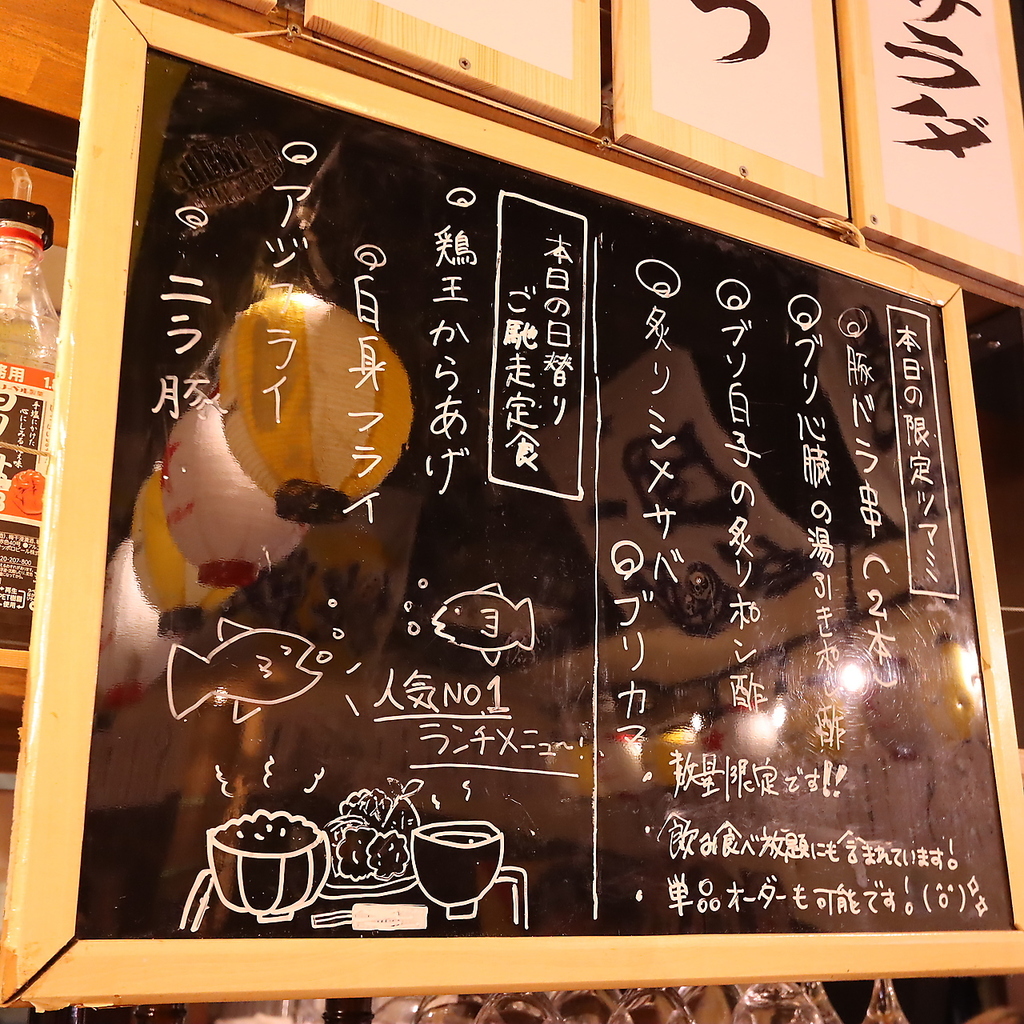 サラダ
つ
本日の限定ツマミ
豚バラ串(2本)
ブリ心臓の湯引きポン酢
ブリ白子の炙りポン酢
炙りシメサバ
ブリカマ
・数量限定です!!
・飲み食べ放題にも含まれています!
・単品オーダーも可能です!
本日の日替り
ご馳走定食
鶏王からあげ
白身フライ
アジフライ
ニラ豚
人気NO.1
ランチメニュ〜!